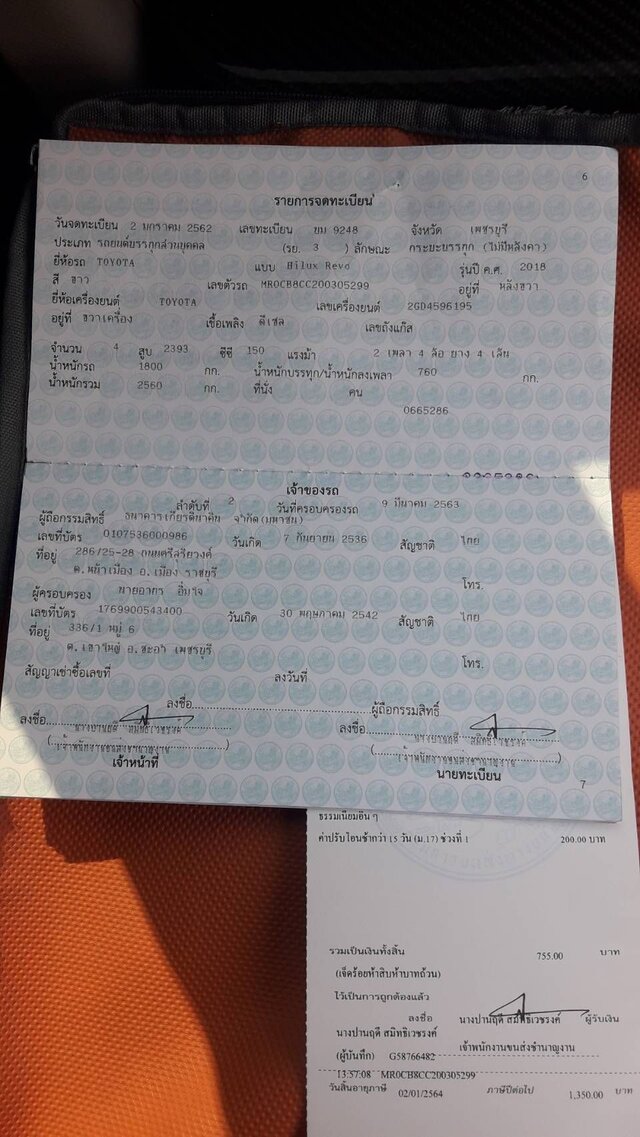 6
รายการจดทะเบียน
วันจดทะเบียน 2 มกราคม 2562 เลขทะเบียน ขม 9248 จังหวัด เพชรบุรี
ประเภท รถยนต์บรรทุกส่วนบุคคล (รย. 3 ) ลักษณะ กระบะบรรทุก (ไม่มีหลังคา)
ยี่ห้อรถ TOYOTA แบบ Hilux Revo รุ่นปี ค.ศ. 2018
สี ขาว เลขตัวรถ MR0CB8CC200305299 อยู่ที่ หลังขวา
ยี่ห้อเครื่องยนต์ TOYOTA เลขเครื่องยนต์ 2GD4596195
อยู่ที่ ขวาเครื่อง เชื้อเพลิง ดีเซล เลขถังแก๊ส
จำนวน 4 สูบ 2393 ซีซี 150 แรงม้า 2 เพลา 4 ล้อ ยาง 4 เส้น
น้ำหนักรถ 1800 กก. น้ำหนักบรรทุก/น้ำหนักลงเพลา 760 กก.
น้ำหนักรวม 2560 กก. ที่นั่ง คน
0665286
เจ้าของรถ
ลำดับที่ 2 วันที่ครอบครองรถ 9 มีนาคม 2563
ผู้ถือกรรมสิทธิ์ ธนาคารเกียรตินาคิน จำกัด(มหาชน)
เลขที่บัตร 0107536000986 วันเกิด 7 กันยายน 2536 สัญชาติ ไทย
ที่อยู่ 286/25-28 ถนนศรีสุริยวงศ์
ต.หน้าเมือง อ.เมือง ราชบุรี โทร.
ผู้ครอบครอง นายอายุร อิ่มใจ
เลขที่บัตร 1769900543400 วันเกิด 30 พฤษภาคม 2542 สัญชาติ ไทย
ที่อยู่ 336/1 หมู่ 6
ต.เขาใหญ่ อ.ชะอำ เพชรบุรี โทร.
สัญญาเช่าซื้อเลขที่ ลงวันที่
ลงชื่อ ผู้ถือกรรมสิทธิ์
ลงชื่อ นางปานฤดี สมิทธิเวชรงค์ ลงชื่อ นางปานฤดี สมิทธิเวชรงค์
(เจ้าพนักงานขนส่งชำนาญงาน) (เจ้าพนักงานขนส่งชำนาญงาน)
เจ้าหน้าที่ นายทะเบียน
7
ธรรมเนียมอื่น ๆ
ค่าปรับโอนช้ากว่า 15 วัน (ม.17) ช่วงที่ 1 200.00 บาท
รวมเป็นเงินทั้งสิ้น 755.00 บาท
(เจ็ดร้อยห้าสิบห้าบาทถ้วน)
ไว้เป็นการถูกต้องแล้ว
ลงชื่อ นางปานฤดี สมิทธิเวชรงค์ ผู้รับเงิน
นางปานฤดี สมิทธิเวชรงค์ เจ้าพนักงานขนส่งชำนาญงาน
(ผู้บันทึก) G58766482
13:57:08 MR0CB8CC200305299
วันสิ้นอายุภาษี 02/01/2564 ภาษีปีต่อไป 1,350.00 บาท